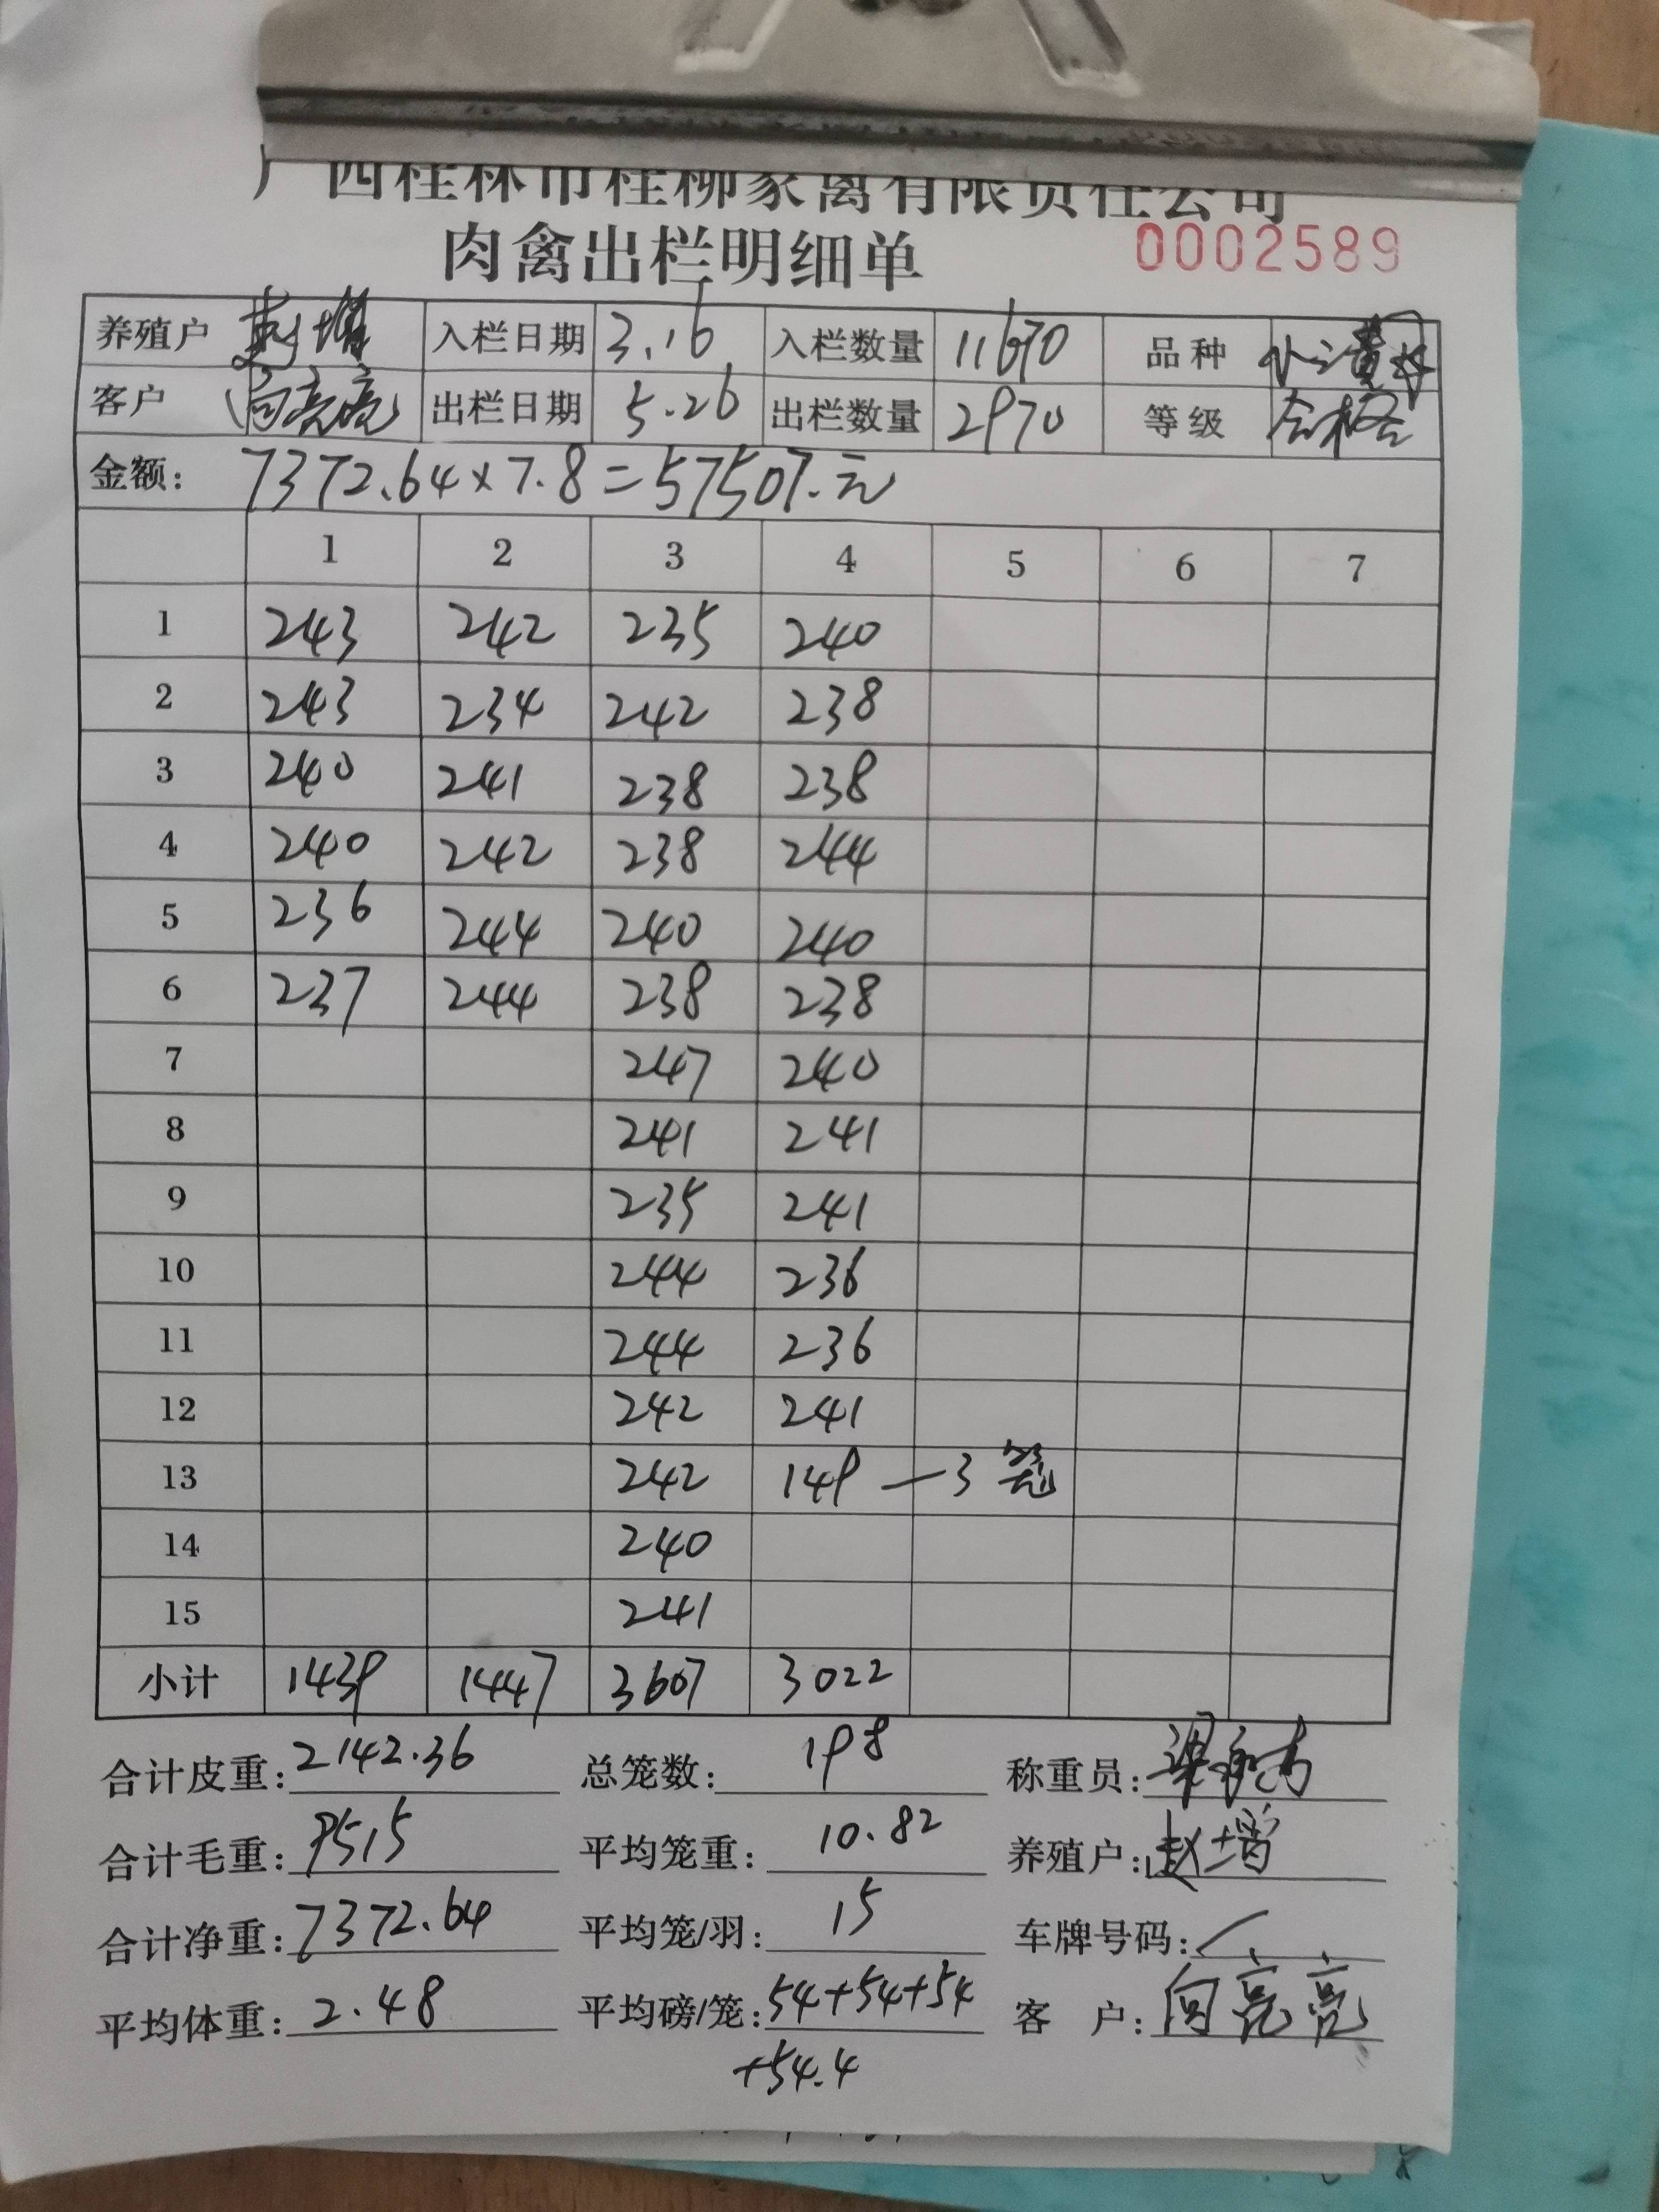 广西桂林市桂柳家禽有限责任公司
肉禽出栏明细单 0002589
养殖户 赵增 入栏日期 3.16 入栏数量 11670 品种
客户 向亮亮 出栏日期 5.26 出栏数量 2970 等级 合格
金额: 7372.64×7.8=57507.元
1 2 3 4 5 6 7
1 243 242 235 240
2 243 234 242 238
3 240 241 238 238
4 240 242 238 244
5 236 244 240 240
6 237 244 238 238
7 247 240
8 241 241
9 235 241
10 244 236
11 244 236
12 242 241
13 242 149 — 3笼
14 240
15 241
小计 1439 1447 3607 3022
合计皮重: 2142.36 总笼数: 198 称重员:
合计毛重: 9515 平均笼重: 10.82 养殖户: 赵增
合计净重: 7372.64 平均笼/羽: 15 车牌号码: /
平均体重: 2.48 平均磅/笼: 54+54+54 客 户: 向亮亮
+54.4